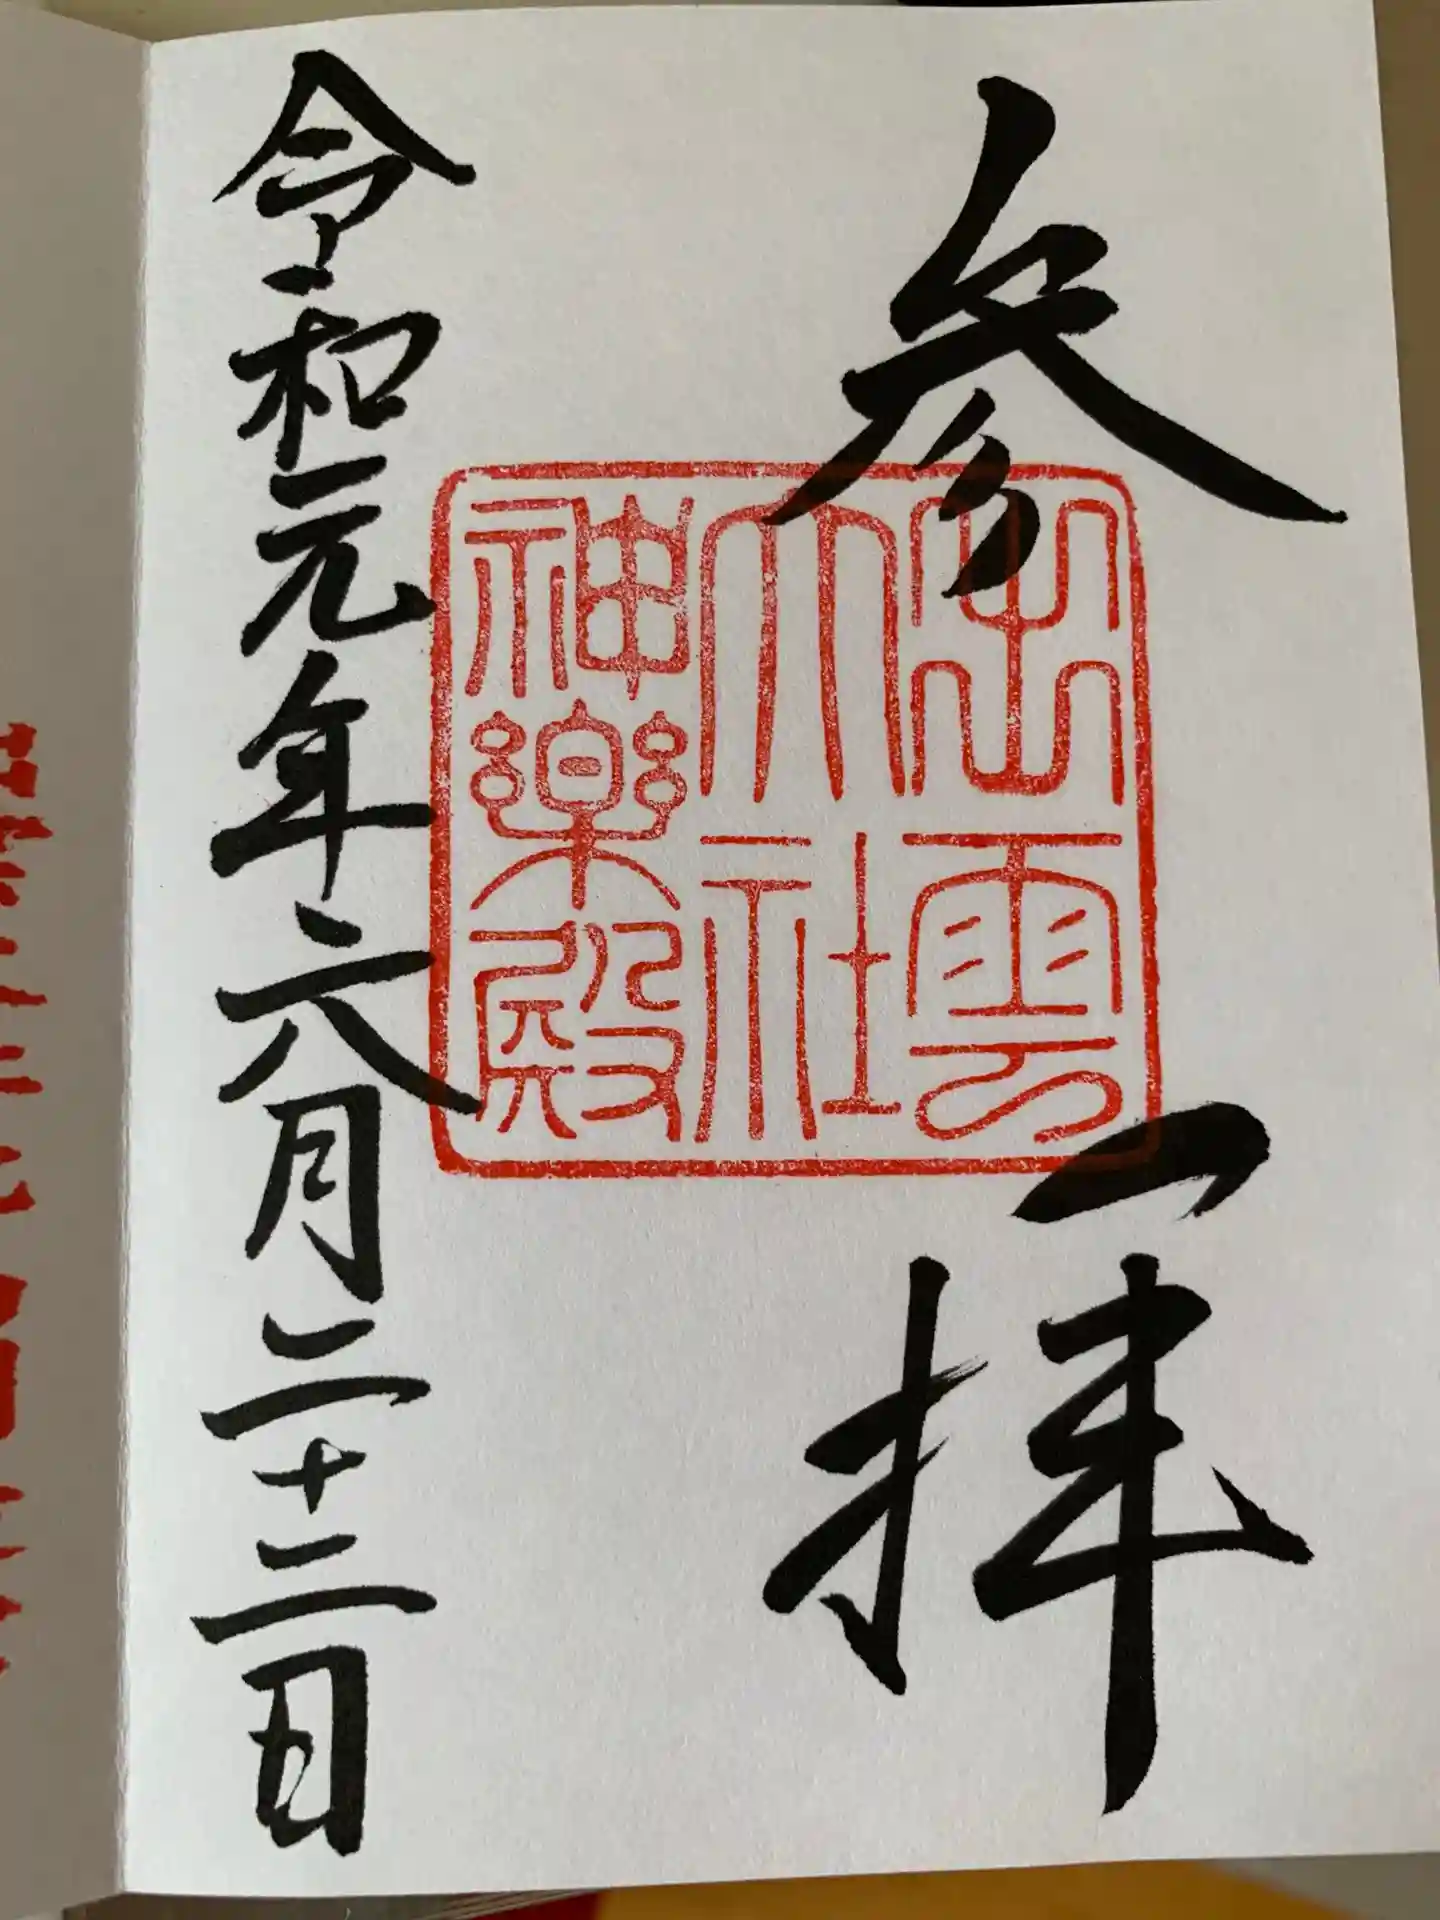 参拝
出雲
大社
神樂殿
令和元年六月二十二日